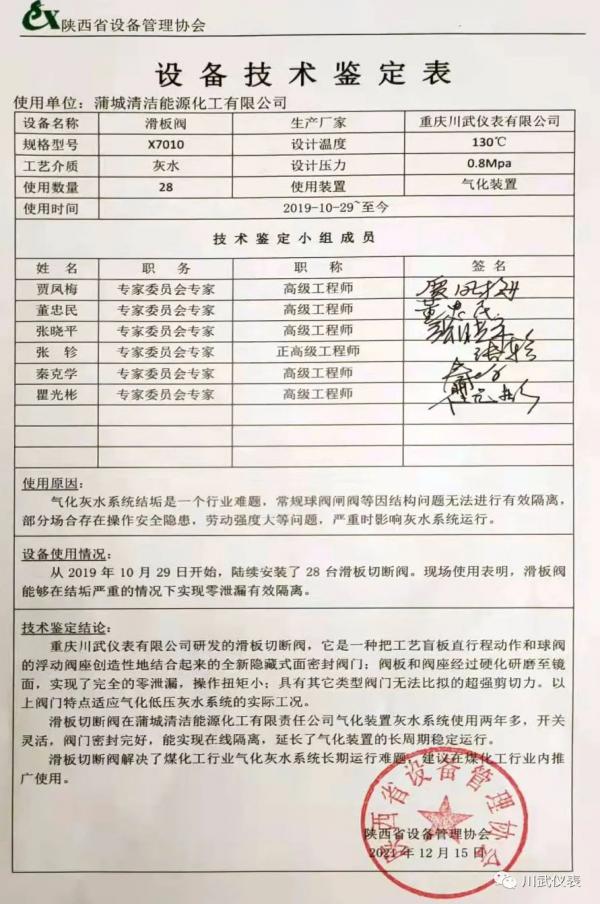 EX 陕西省设备管理协会
设备技术鉴定表
使用单位：蒲城清洁能源化工有限公司
设备名称 滑板阀 生产厂家 重庆川武仪表有限公司
规格型号 X7010 设计温度 130℃
工艺介质 灰水 设计压力 0.8Mpa
使用数量 28 使用装置 气化装置
使用时间 2019-10-29~至今
技术鉴定小组成员
姓名 职务 职称 签名
贾凤梅 专家委员会专家 高级工程师 贾凤梅
董忠民 专家委员会专家 高级工程师 董忠民
张晓平 专家委员会专家 高级工程师 张晓平
张轸 专家委员会专家 正高级工程师 张轸
秦克学 专家委员会专家 高级工程师
瞿光彬 专家委员会专家 高级工程师 瞿光彬
使用原因：
气化灰水系统结垢是一个行业难题，常规球阀闸阀等因结构问题无法进行有效隔离，
部分场合存在操作安全隐患，劳动强度大等问题，严重时影响灰水系统运行。
设备使用情况：
从 2019 年 10 月 29 日开始，陆续安装了 28 台滑板切断阀。现场使用表明，滑板阀
能够在结垢严重的情况下实现零泄漏有效隔离。
技术鉴定结论：
重庆川武仪表有限公司研发的滑板切断阀，它是一种把工艺盲板直行程动作和球阀
的浮动阀座创造性地结合起来的全新隐藏式面密封阀门；阀板和阀座经过硬化研磨至镜
面，实现了完全的零泄漏，操作扭矩小；具有其它类型阀门无法比拟的超强剪切力。以
上阀门特点适应气化低压灰水系统的实际工况。
滑板切断阀在蒲城清洁能源化工有限责任公司气化装置灰水系统使用两年多，开关
灵活，阀门密封完好，能实现在线隔离，延长了气化装置的长周期稳定运行。
滑板切断阀解决了煤化工行业气化灰水系统长期运行难题，建议在煤化工行业内推
广使用。
陕西省设备管理协会
陕西省设备管理协会
2021 年 12 月 15 日
川武仪表